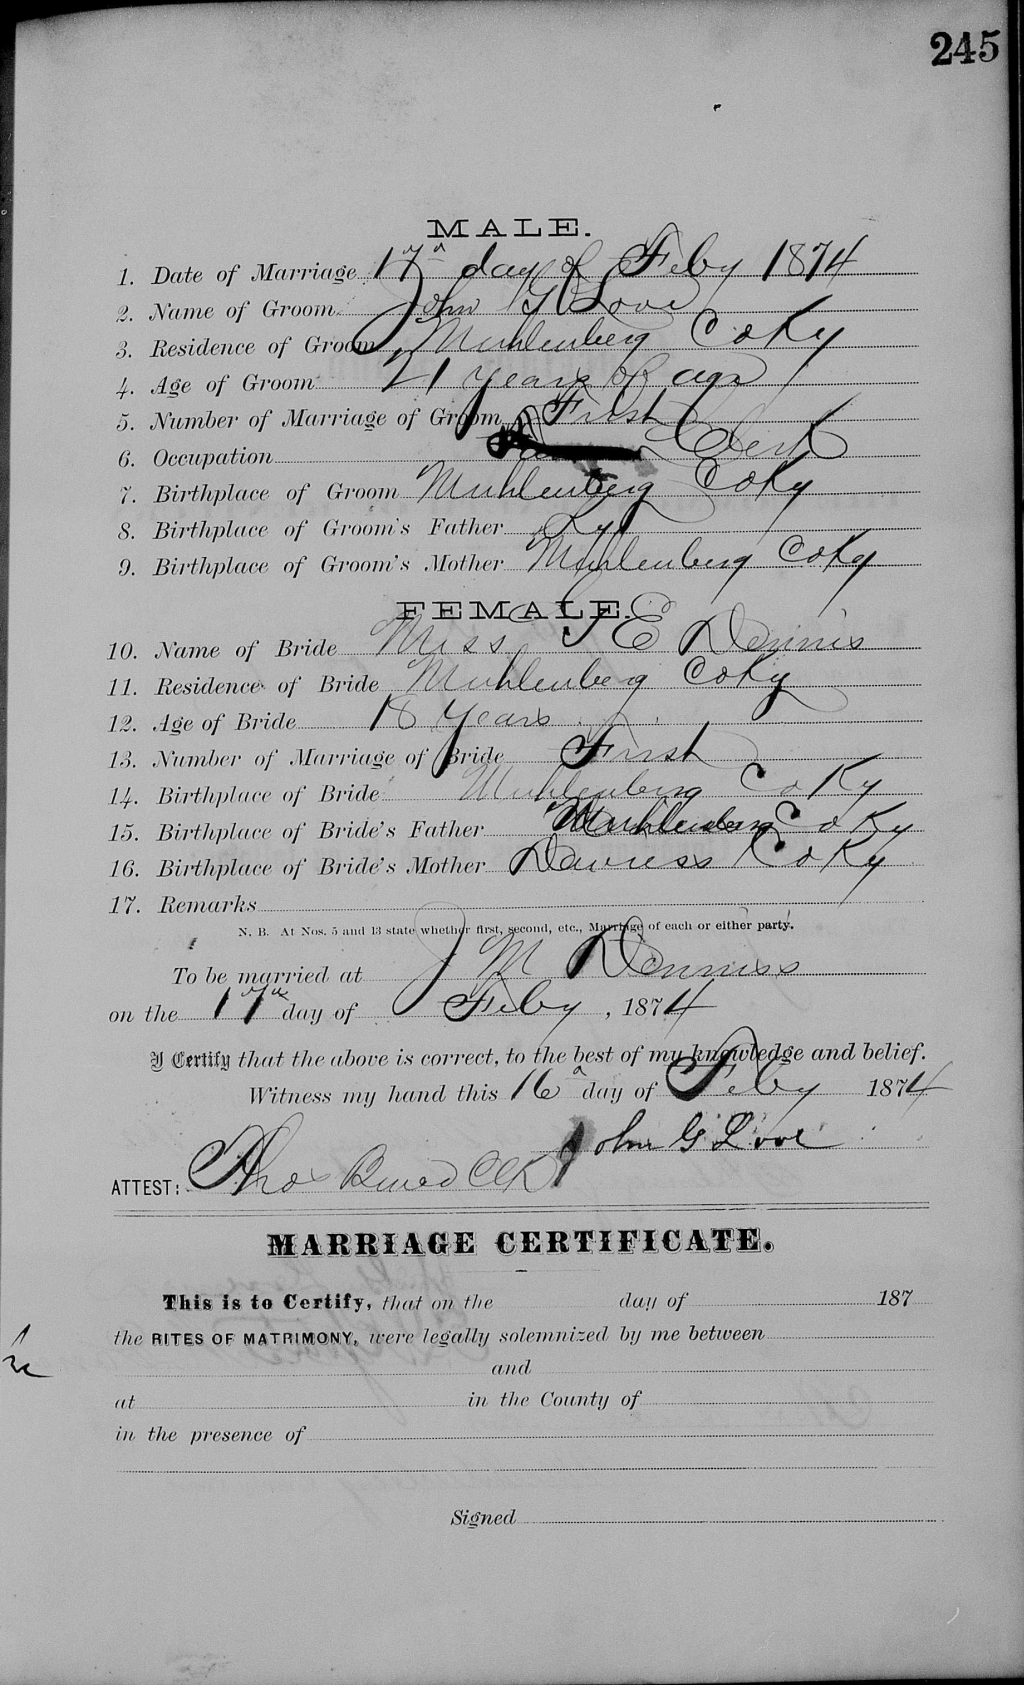 245
MALE.
1. Date of Marriage 17th day of Feby 1874
2. Name of Groom John G Love
3. Residence of Groom Muhlenberg Co Ky
4. Age of Groom 21 years of age
5. Number of Marriage of Groom First
6. Occupation Clerk
7. Birthplace of Groom Muhlenberg Co Ky
8. Birthplace of Groom's Father Ky
9. Birthplace of Groom's Mother Muhlenberg Co Ky
FEMALE.
10. Name of Bride Miss J E Dennis
11. Residence of Bride Muhlenberg Co Ky
12. Age of Bride 18 years
13. Number of Marriage of Bride First
14. Birthplace of Bride Muhlenberg Co Ky
15. Birthplace of Bride's Father Muhlenberg Co Ky
16. Birthplace of Bride's Mother Daviess Co Ky
17. Remarks
N. B. At Nos. 5 and 13 state whether first, second, etc., Marriage of each or either party.
To be married at J M Denniss
on the 17th day of Feby, 1874
I Certify that the above is correct, to the best of my knowledge and belief.
Witness my hand this 16 day of Feby 1874
John G Love
ATTEST: Thos Clk
MARRIAGE CERTIFICATE.
This is to Certify, that on the day of 187
the RITES OF MATRIMONY, were legally solemnized by me between
and
at in the County of
in the presence of
Signed